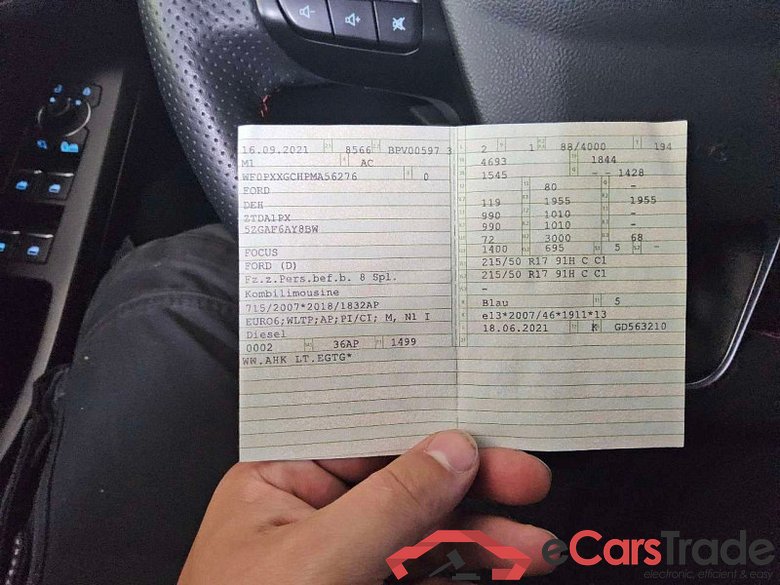 16.09.2021 8566 BPV00597 3
M1 AC
WF0PXXGCHPMA56276 0
FORD
DEH
ZTDA1PX
5ZGAF6AY8BW
FOCUS
FORD (D)
Fz.z.Pers.bef.b. 8 Spl.
Kombilimousine
715/2007*2018/1832AP
EURO6;WLTP;AP;PI/CI; M, N1 I
Diesel
0002 36AP 1499
WW.AHK LT.EGTG*
2 1 88/4000 194
4693 1844
1545 - - 1428
80 -
119 1955 1955
990 1010 -
990 1010 -
72 3000 68
1400 695 5 -
215/50 R17 91H C C1
215/50 R17 91H C C1
-
Blau 5
e13*2007/46*1911*13
18.06.2021 K GD563210
eCarsTrade
electronic, efficient & easy